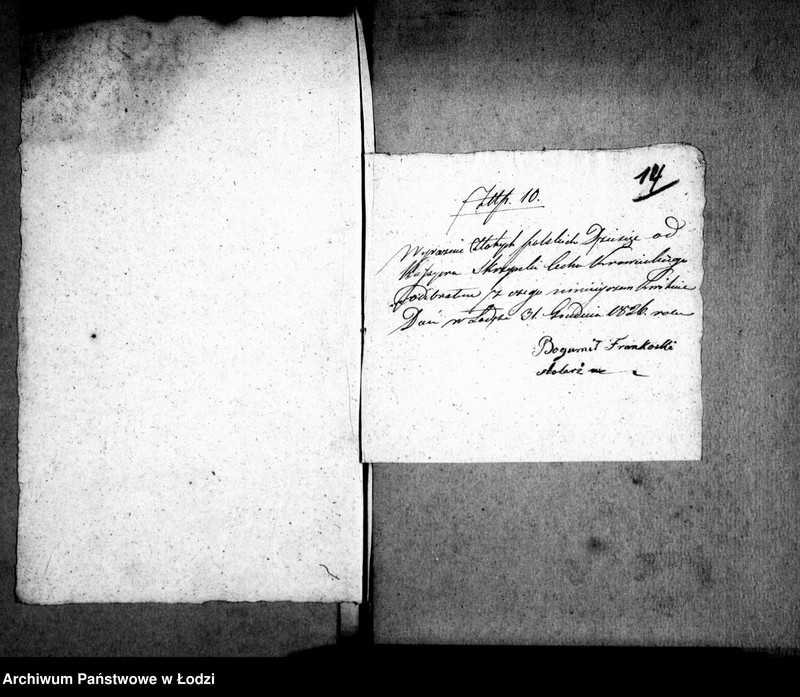 14
Złłp. 10.
Wyraźnie Złotych polskich Dziesięć od
Kassyera Skrzynki Cechu Krawieckiego
odebrałem z czego niniejszem kwituie
Dań w Łodzi 31. Grudnia 1826. roku
Bogumił Frankoski
stolarz
Archiwum Państwowe w Łodzi